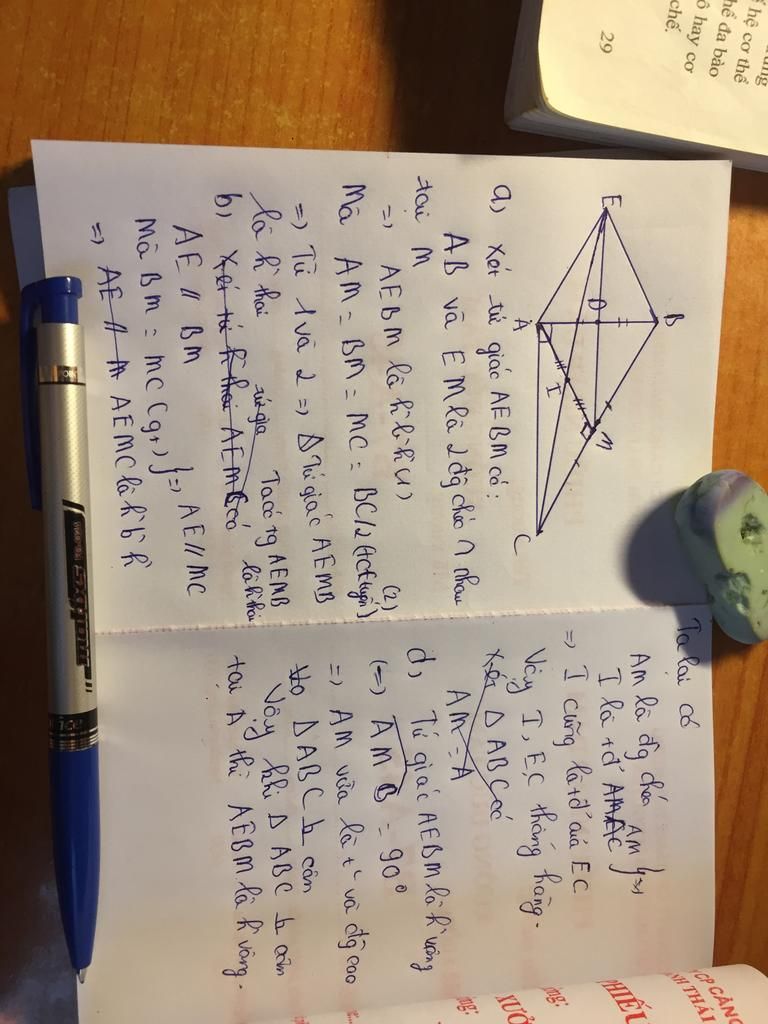 ể hệ cơ thể
thể đa bào
ô hay cơ
chế.
29
E
B
D
A
M
I
C
a) Xét tứ giác AEBM có:
AB và EM là 2 đg chéo ∩ nhau
tại M
=> AEBM là hbh (1)
Mà AM = BM = MC = BC/2 (t/c tuyến) (2)
=> Từ 1 và 2 => Δ Tứ giác AEMB
là h thoi
b) Xét tứ h thoi AEMC có
tứ giác
Ta có tg AEMB
là h thoi
AE // BM
Mà BM = MC (gt) } => AE // MC
=> AE // M AEMC là h b h
Ta lại có
AM là đg chéo AM } =>
I là tđ AMEC
=> I cũng là tđ của EC
Vậy I, E, C thẳng hàng.
Xét Δ ABC có
AM = A
d) Tứ giác AEBM là h vuông
(=) AMB = 90°
=> AM vừa là t² và đg cao
Δ ABC cân
Vậy khi Δ ABC cân
tại A thì AEBM là h vuông.
CP CẢNG
NH THÁI
PHIẾU
XƯỞ